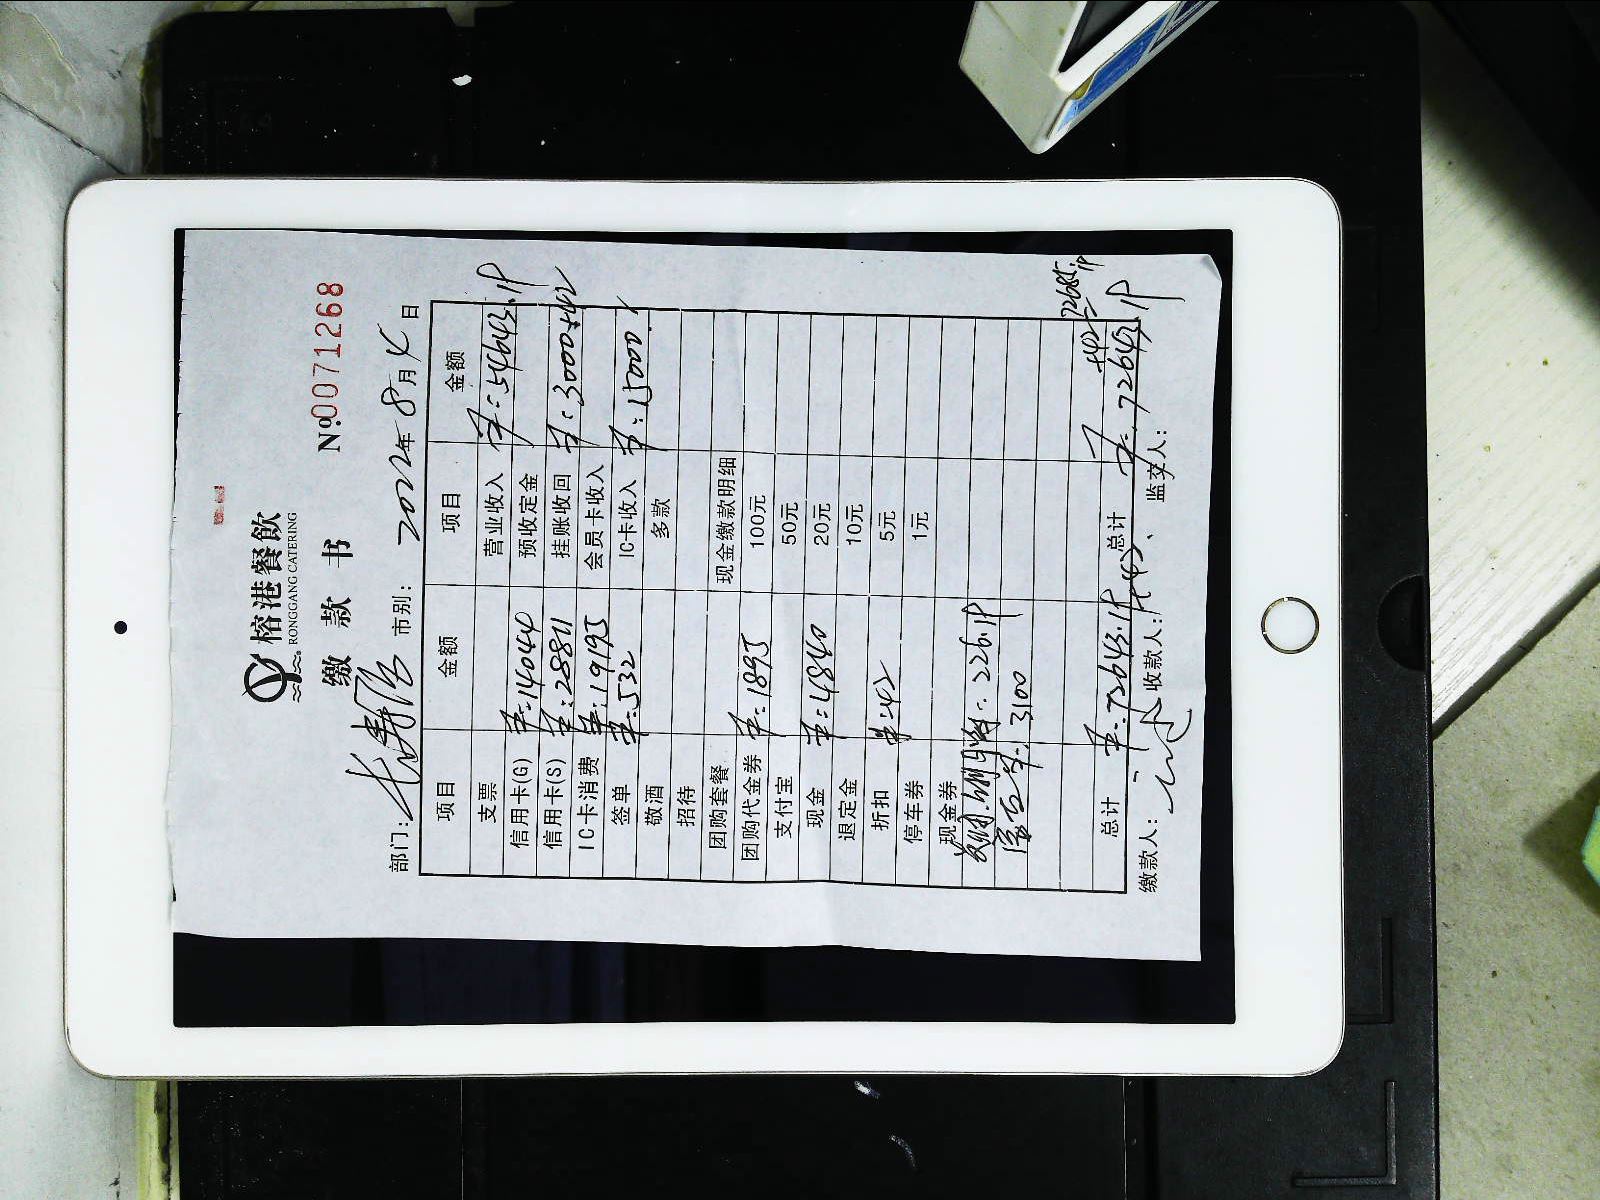 榕港餐飲
RONGGANG CATERING
缴 款 书 №0071268
部门: 市别: 2022年8月4日
项目 金额 项目 金额
支票 营业收入 ¥:54643.18
信用卡(G) ¥:14044 预收定金
信用卡(S) ¥:28811 挂账收回 ¥:3000+42
IC卡消费 ¥:19195 会员卡收入
签单 ¥:532 IC卡收入 ¥:15000
敬酒 多款
招待
团购套餐 现金缴款明细
团购代金券 ¥:1895 100元
支付宝 50元
现金 ¥:4840 20元
退定金 10元
折扣 ¥:42 5元
停车券 1元
现金券
226.18
3100
+42= 72685.18
总计 ¥:72643.18 总计 ¥:72643.18
+42
缴款人: 收款人: 监交人: